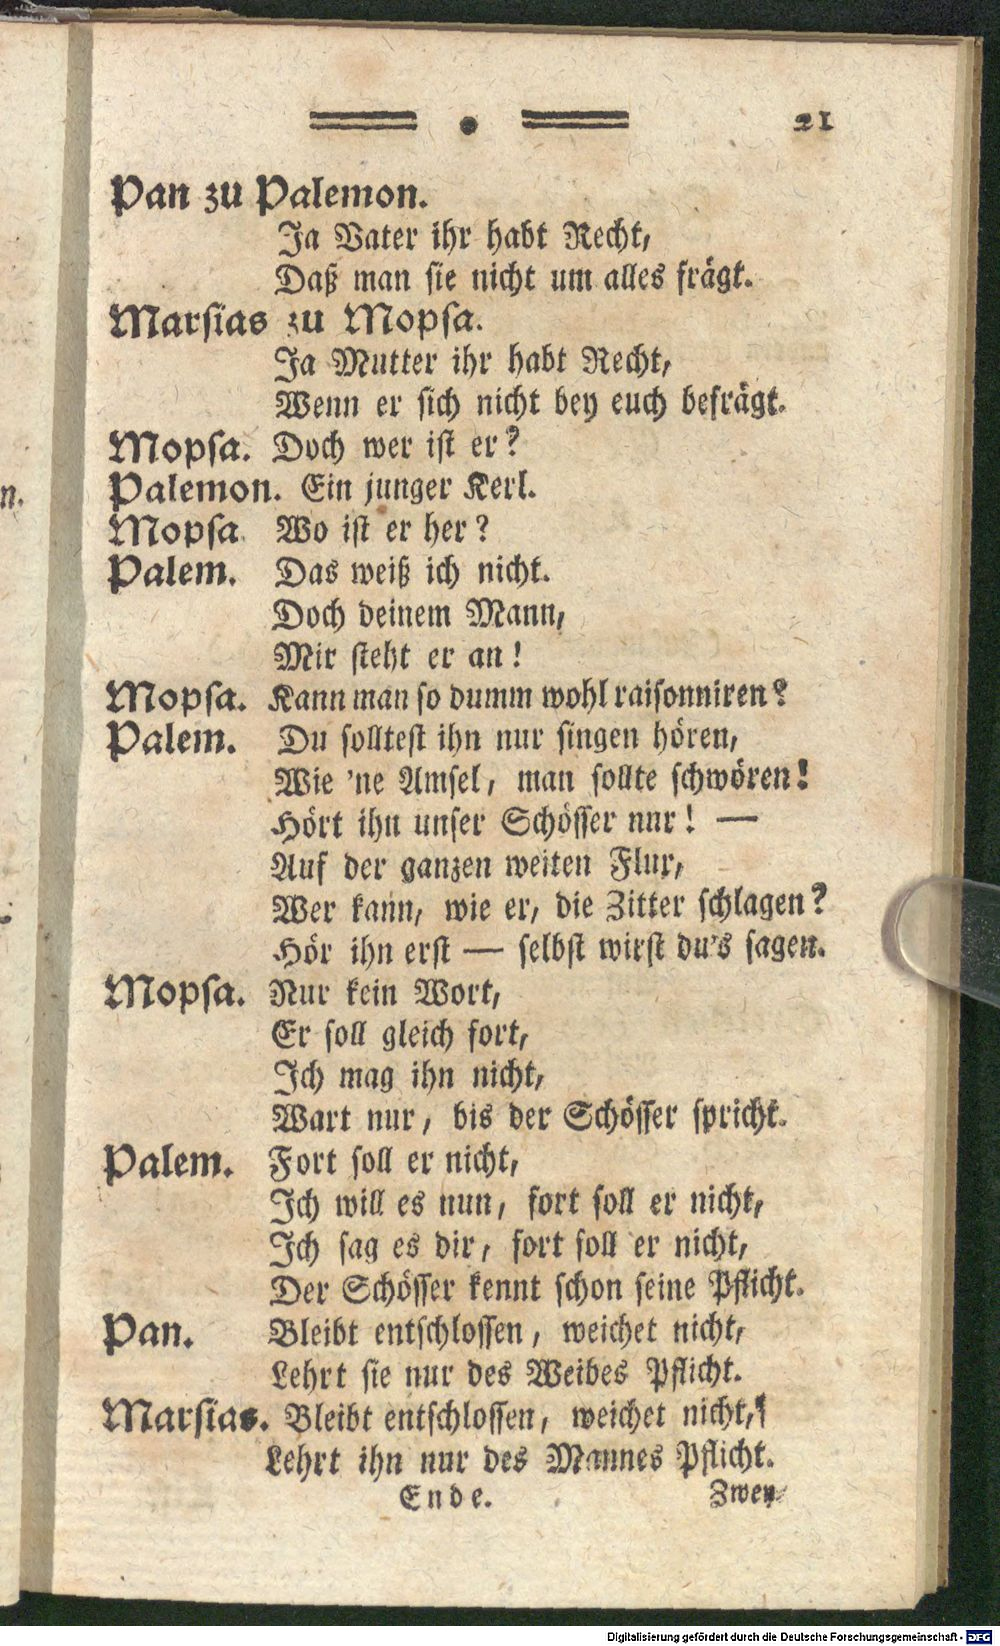 21
Pan zu Palemon.
Ja Vater ihr habt Recht,
Daß man sie nicht um alles frägt.
Marsias zu Mopsa.
Ja Mutter ihr habt Recht,
Wenn er sich nicht bey euch befrägt.
Mopsa. Doch wer ist er?
Palemon. Ein junger Kerl.
Mopsa. Wo ist er her?
Palem. Das weiß ich nicht.
Doch deinem Mann,
Mir steht er an!
Mopsa. Kann man so dumm wohl raisonniren?
Palem. Du solltest ihn nur singen hören,
Wie 'ne Amsel, man sollte schwören!
Hört ihn unser Schösser nur! —
Auf der ganzen weiten Flur,
Wer kann, wie er, die Zitter schlagen?
Hör ihn erst — selbst wirst du's sagen.
Mopsa. Nur kein Wort,
Er soll gleich fort,
Ich mag ihn nicht,
Wart nur, bis der Schösser spricht.
Palem. Fort soll er nicht,
Ich will es nun, fort soll er nicht,
Ich sag es dir, fort soll er nicht,
Der Schösser kennt schon seine Pflicht.
Pan. Bleibt entschlossen, weichet nicht,
Lehrt sie nur des Weibes Pflicht.
Marsias. Bleibt entschlossen, weichet nicht,
Lehrt ihn nur des Mannes Pflicht.
Ende. Zwey-
n.
Digitalisierung gefördert durch die Deutsche Forschungsgemeinschaft - DFG